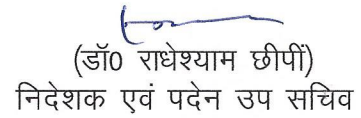 (डॉ0 राधेश्याम छीपीं)
निदेशक एवं पदेन उप सचिव